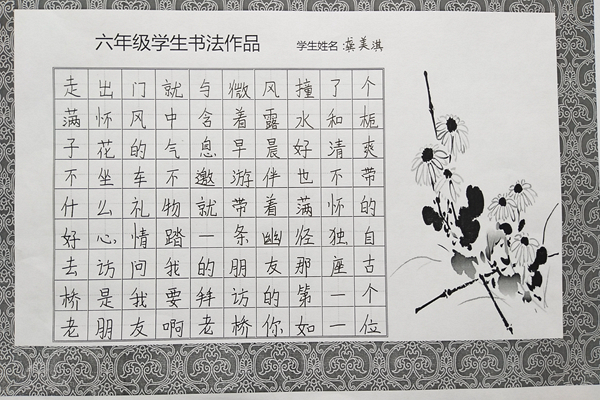 六年级学生书法作品 学生姓名:龚美淇
走出门就与微风撞了个
满怀风中含着露水和栀
子花的气息早晨好清爽
不坐车不邀游伴也不带
什么礼物就带着满怀的
好心情踏一条幽径独自
去访问我的朋友那座古
桥是我要拜访的第一个
老朋友啊老桥你如一位